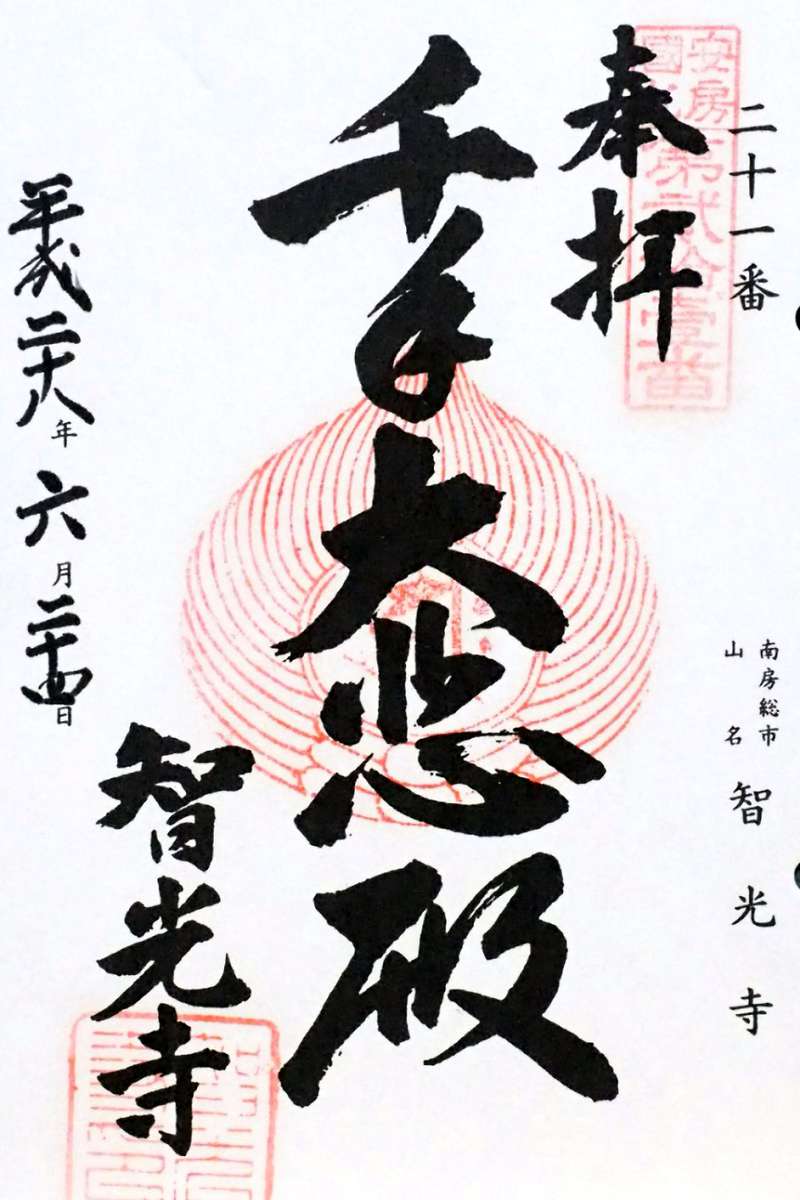 二十一番
南房総市
山名
智光寺
奉拝
安房
國札
第弐拾壱番
千手大悲殿
智光寺
平成二十八年六月二十四日